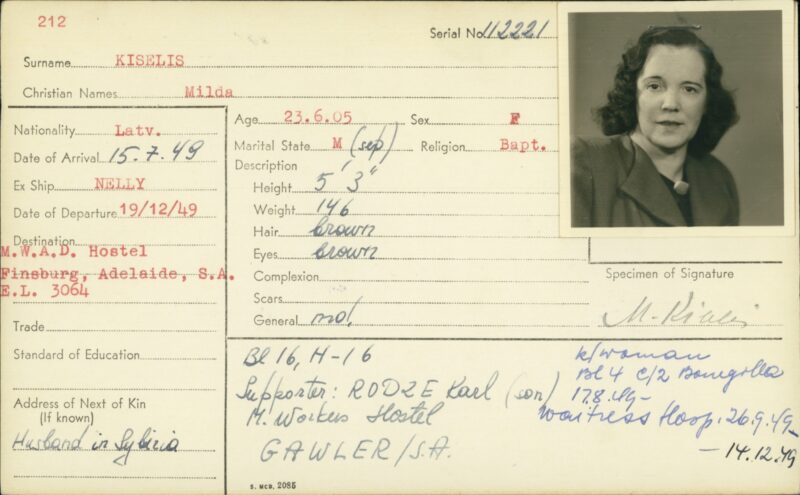 212
Serial No. 112221
Surname KISELIS
Christian Names Milda
Nationality Latv.
Date of Arrival 15.7.49
Ex Ship NELLY
Date of Departure 19/12/49
Destination
M.W.A.D. Hostel
Finsburg, Adelaide, S.A.
E.L. 3064
Trade
Standard of Education
Address of Next of Kin
(If known)
Husband in Sybiria
Age 23.6.05 Sex F
Marital State M (sep) Religion Bapt.
Description
Height 5' 3"
Weight 146
Hair brown
Eyes brown
Complexion
Scars
General
Specimen of Signature
M. Kiselis
Bl 16, H-16
Supporter: RODZE Karl (son)
M. Workers Hostel
GAWLER/S.A.
k/woman
Bl 4 C/2 Bonegilla
17.8.49-
Waitress Hosp. 26.9.49-
- 14.12.49
S. MCD, 2085